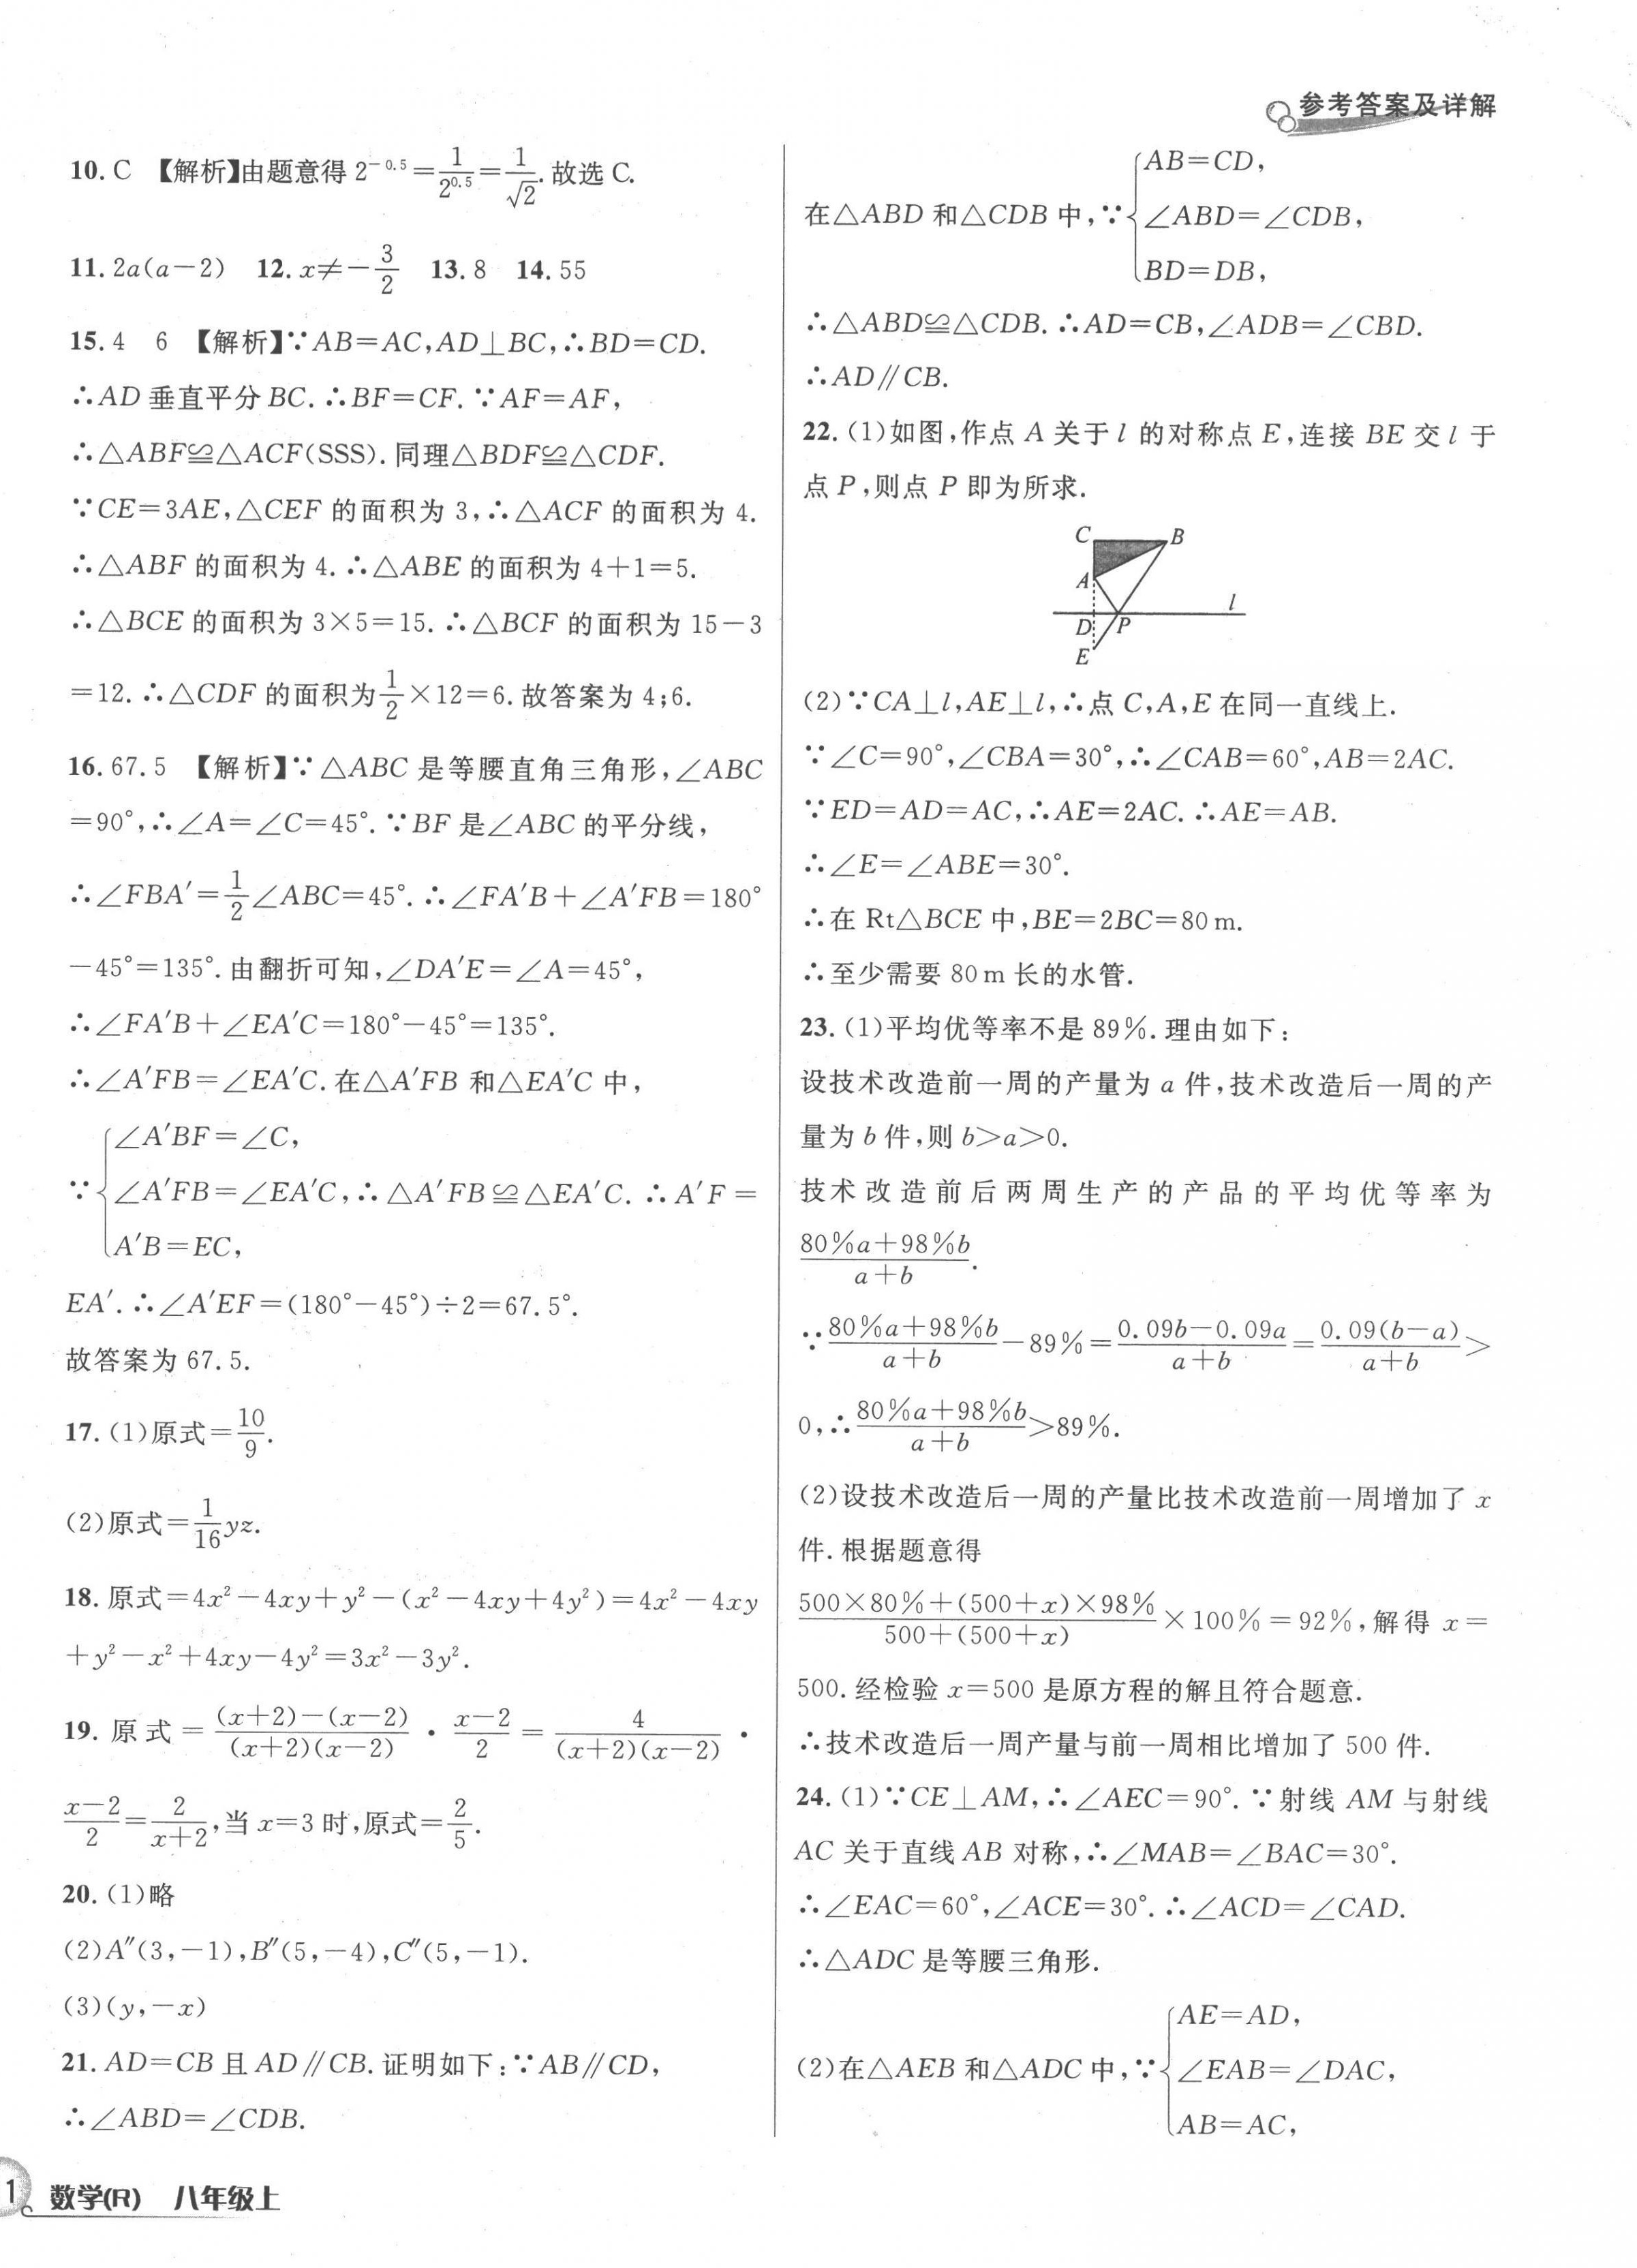 参考答案及详解
10. C 【解析】由题意得 2^{-0.5}=\frac{1}{2^{0.5}}=\frac{1}{\sqrt{2}}. 故选 C.
11. 2a(a-2) 12. x≠-\frac{3}{2} 13. 8 14. 55
15. 4 6 【解析】∵AB=AC,AD⊥BC,∴BD=CD.
∴AD 垂直平分 BC. ∴BF=CF. ∵AF=AF,
∴△ABF≌△ACF(SSS). 同理△BDF≌△CDF.
∵CE=3AE,△CEF 的面积为 3,∴△ACF 的面积为 4.
∴△ABF 的面积为 4. ∴△ABE 的面积为 4+1=5.
∴△BCE 的面积为 3×5=15. ∴△BCF 的面积为 15-3
=12. ∴△CDF 的面积为\frac{1}{2}×12=6. 故答案为 4;6.
16. 67.5 【解析】∵△ABC 是等腰直角三角形,∠ABC
=90°,∴∠A=∠C=45°. ∵BF 是∠ABC 的平分线,
∴∠FBA′=\frac{1}{2}∠ABC=45°. ∴∠FA′B+∠A′FB=180°
-45°=135°. 由翻折可知,∠DA′E=∠A=45°,
∴∠FA′B+∠EA′C=180°-45°=135°.
∴∠A′FB=∠EA′C. 在△A′FB 和△EA′C 中,
∠A′BF=∠C,
∵ ∠A′FB=∠EA′C, ∴△A′FB≌△EA′C. ∴A′F=
A′B=EC,
EA′. ∴∠A′EF=(180°-45°)÷2=67.5°.
故答案为 67.5.
17. (1)原式=\frac{10}{9}.
(2)原式=\frac{1}{16}yz.
18. 原式=4x²-4xy+y²-(x²-4xy+4y²)=4x²-4xy
+y²-x²+4xy-4y²=3x²-3y².
19. 原式=\frac{(x+2)-(x-2)}{(x+2)(x-2)}·\frac{x-2}{2}=\frac{4}{(x+2)(x-2)}·
\frac{x-2}{2}=\frac{2}{x+2},当 x=3 时,原式=\frac{2}{5}.
20. (1)略
(2)A″(3,-1),B″(5,-4),C″(5,-1).
(3)(y,-x)
21. AD=CB 且 AD∥CB. 证明如下:∵AB∥CD,
∴∠ABD=∠CDB.
AB=CD,
在△ABD 和△CDB 中,∵ ∠ABD=∠CDB,
BD=DB,
∴△ABD≌△CDB. ∴AD=CB,∠ADB=∠CBD.
∴AD∥CB.
22. (1)如图,作点 A 关于 l 的对称点 E,连接 BE 交 l 于
点 P,则点 P 即为所求.
C B
A
l
D P
E
(2)∵CA⊥l,AE⊥l,∴点 C,A,E 在同一直线上.
∵∠C=90°,∠CBA=30°,∴∠CAB=60°,AB=2AC.
∵ED=AD=AC,∴AE=2AC. ∴AE=AB.
∴∠E=∠ABE=30°.
∴在 Rt△BCE 中,BE=2BC=80 m.
∴至少需要 80 m 长的水管.
23. (1)平均优等率不是 89%. 理由如下:
设技术改造前一周的产量为 a 件,技术改造后一周的产
量为 b 件,则 b>a>0.
技术改造前后两周生产的产品的平均优等率为
\frac{80%a+98%b}{a+b}.
∵\frac{80%a+98%b}{a+b}-89%=\frac{0.09b-0.09a}{a+b}=\frac{0.09(b-a)}{a+b}>
0,∴\frac{80%a+98%b}{a+b}>89%.
(2)设技术改造后一周的产量比技术改造前一周增加了 x
件. 根据题意得
\frac{500×80%+(500+x)×98%}{500+(500+x)}×100%=92%,解得 x=
500. 经检验 x=500 是原方程的解且符合题意.
∴技术改造后一周产量与前一周相比增加了 500 件.
24. (1)∵CE⊥AM,∴∠AEC=90°. ∵射线 AM 与射线
AC 关于直线 AB 对称,∴∠MAB=∠BAC=30°.
∴∠EAC=60°,∠ACE=30°. ∴∠ACD=∠CAD.
∴△ADC 是等腰三角形.
AE=AD,
(2)在△AEB 和△ADC 中,∵ ∠EAB=∠DAC,
AB=AC,
1 数学(R) 八年级上